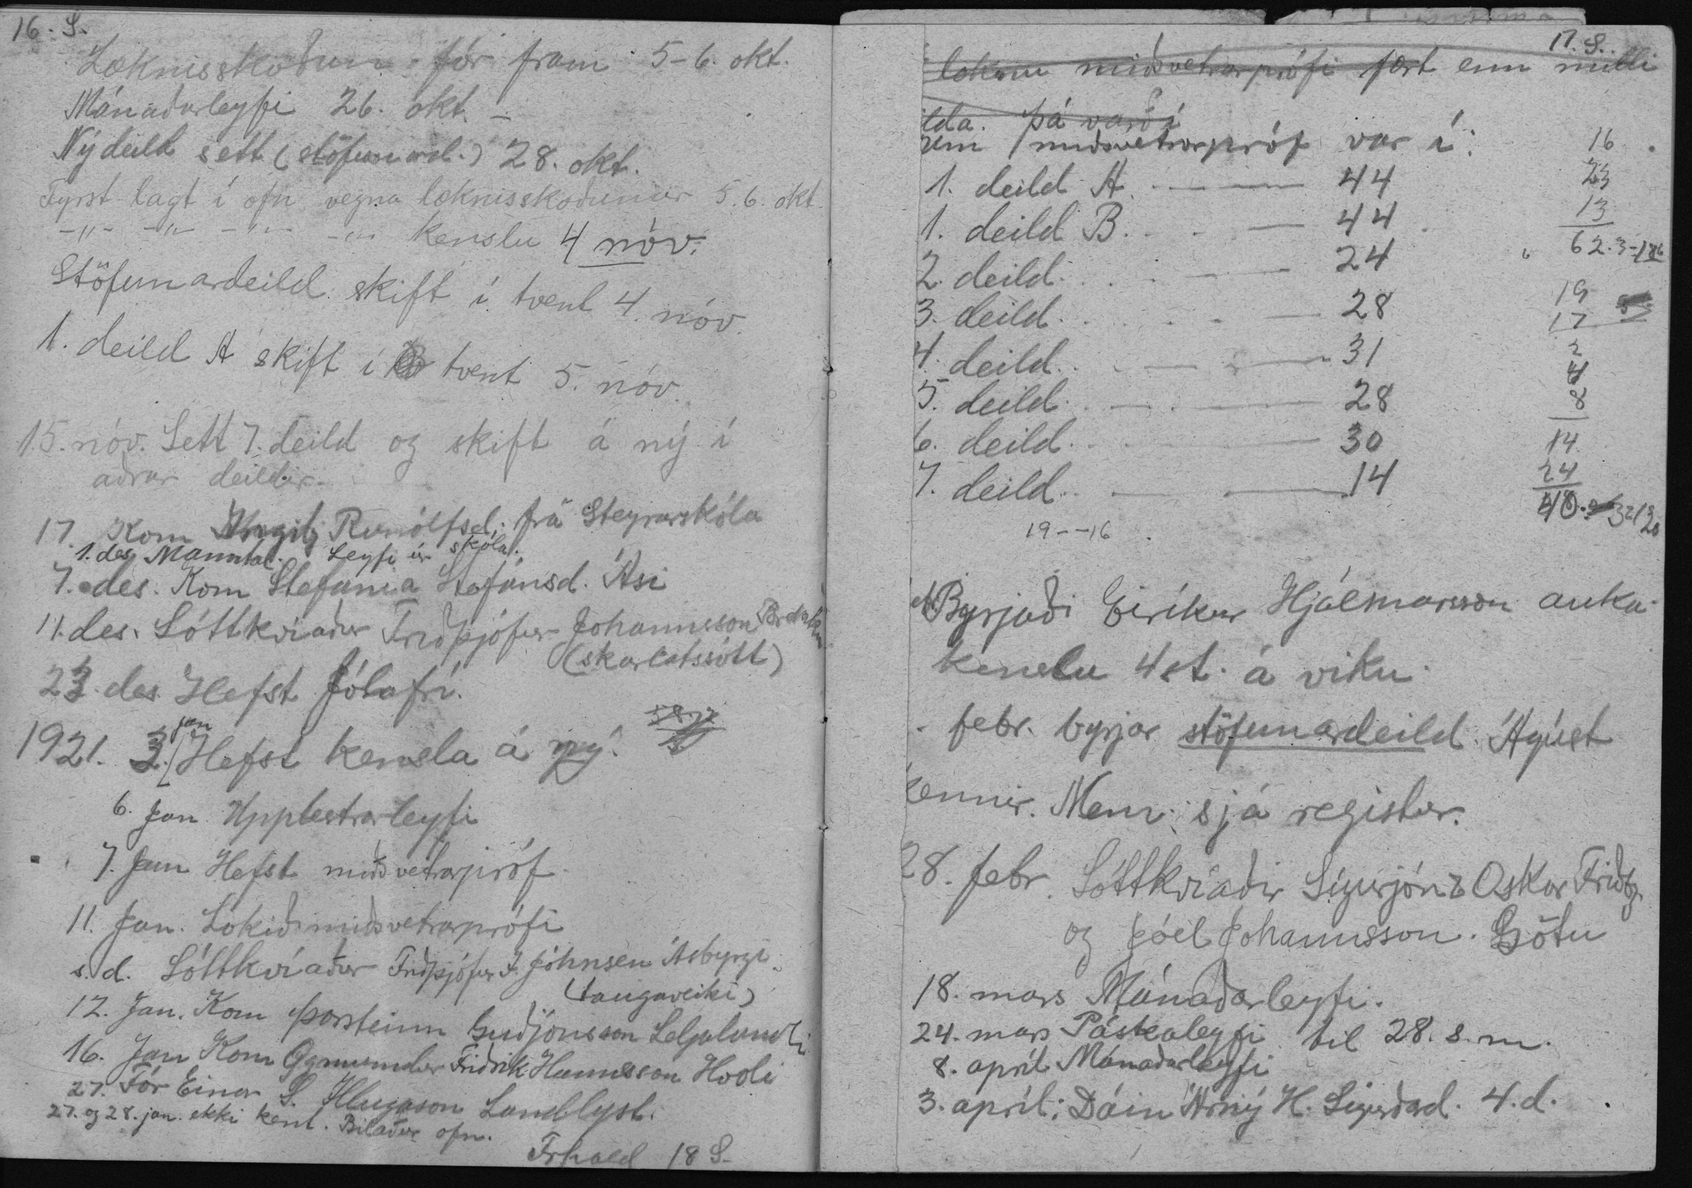 16. S.
Læknisskoðun fór fram 5-6. okt.
Mánaðarleyfi 26. okt. -
Ný deild sett (stöfunard.) 28. okt.
Fyrst lagt í ofn vegna læknisskoðunar 5.6. okt.
-"- -"- -"- -"- kenslu 4 nóv.
Stöfunardeild skift í tvent 4. nóv.
1. deild A skift í tvent 5. nóv.
15. nóv. Sett 7. deild og skift á ný í
aðrar deildir.
17. Kom Runólfsd. frá Steyrarskóla
1. des. Manntal. Leyfi úr skóla.
7. des. Kom Stefania Stefánsd. Ási
11. des. Sóttkvíaður Friðþjófur Johannsson
(skarlatssótt)
23. des. Hefst Jólafrí.
1921. 3. jan Hefst kensla á ný.
6. Jan Upplestrarleyfi
7. Jan Hefst miðvetrarpróf
11. Jan. Lokið miðsvetrarprófi
s. d. Sóttkvíaður Friðþjófur J. Johnsen Ásbyrgi
(taugaveiki)
12. Jan. Kom Þorsteinn Guðjónsson Seljalandi
16. Jan Kom Ögmundur Friðrik Hannesson Hvoli
27. Fór Einar S. Illugason Landlyst.
27. og 28. jan. ekki kent. Bilaður ofn.
Frhald 18 S.
17. S.
loknu miðsvetrarprófi fært enn milli
lda. Þá varð í
um miðsvetrarpróf var í:
1. deild A. 44
1. deild B. 44
2. deild 24
3. deild 28
4. deild 31
5. deild 28
6. deild 30
7. deild 14
19--16
16
23
13
62.3-186
19
17
2
4
8
14
24
40
Byrjaði Eiríkur Hjálmarsson auka-
kenslu 4 st. á viku.
febr. byrjar stöfunardeild Ágúst
kennir. Nem. sjá register.
28. febr. Sóttkvíaðir Sigurjón & Oskar Friðbj.
og Jóel Johannsson. Götu
18. mars Mánaðarleyfi.
24. mars Páskaleyfi til 28. s.m.
8. apríl Mánaðarleyfi
3. apríl: Dáin Árný H. Sigurðard. 4.d.